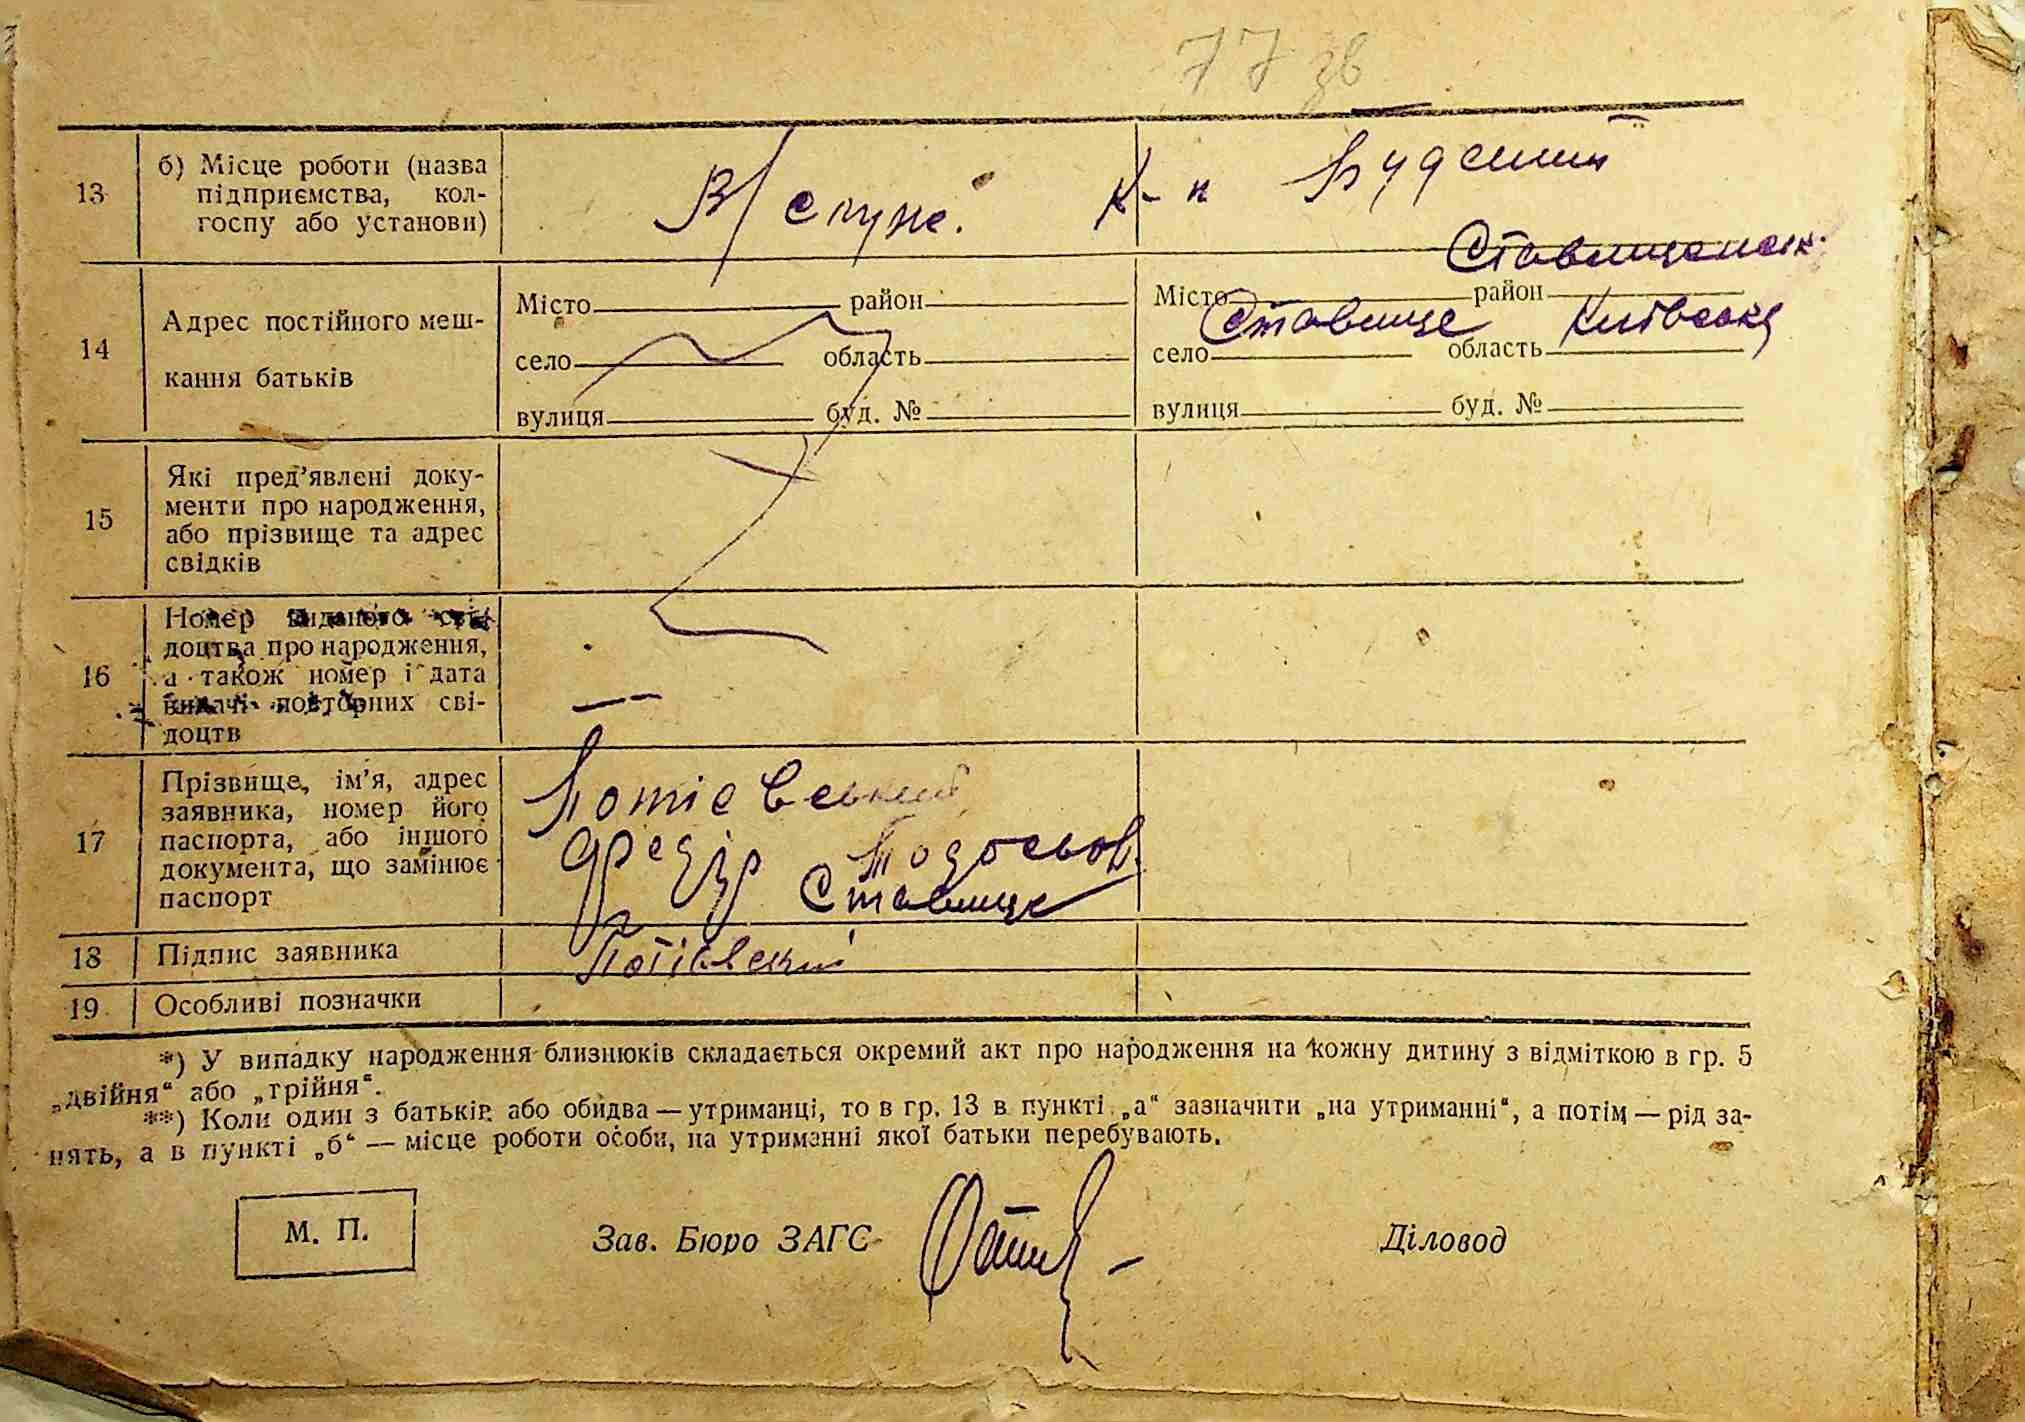 77 зв
13
б) Місце роботи (назва
підприємства, кол-
госпу або установи)
В/служ. К-п Будений
14
Адрес постійного меш-
кання батьків
Місто район
село область
вулиця буд. №
Ставищанськ.
Місто район
Ставище Київська
село область
вулиця буд. №
15
Які пред’явлені доку-
менти про народження,
або прізвище та адрес
свідків
16
Номер виданого сві-
доцтва про народження,
а також номер і дата
видачі повторних сві-
доцтв
—
17
Прізвище, ім’я, адрес
заявника, номер його
паспорта, або іншого
документа, що замінює
паспорт
Потієвський
Федір Тодосьов.
Ставище
18
Підпис заявника
Потієвский
19
Особливі позначки
*) У випадку народження близнюків складається окремий акт про народження на кожну дитину з відміткою в гр. 5
„двійня“ або „трійня“.
**) Коли один з батьків або обидва — утриманці, то в гр. 13 в пункті „а“ зазначити „на утриманні“, а потім — рід за-
нять, а в пункті „б“ — місце роботи особи, на утриманні якої батьки перебувають.
М. П.
Зав. Бюро ЗАГС
Діловод